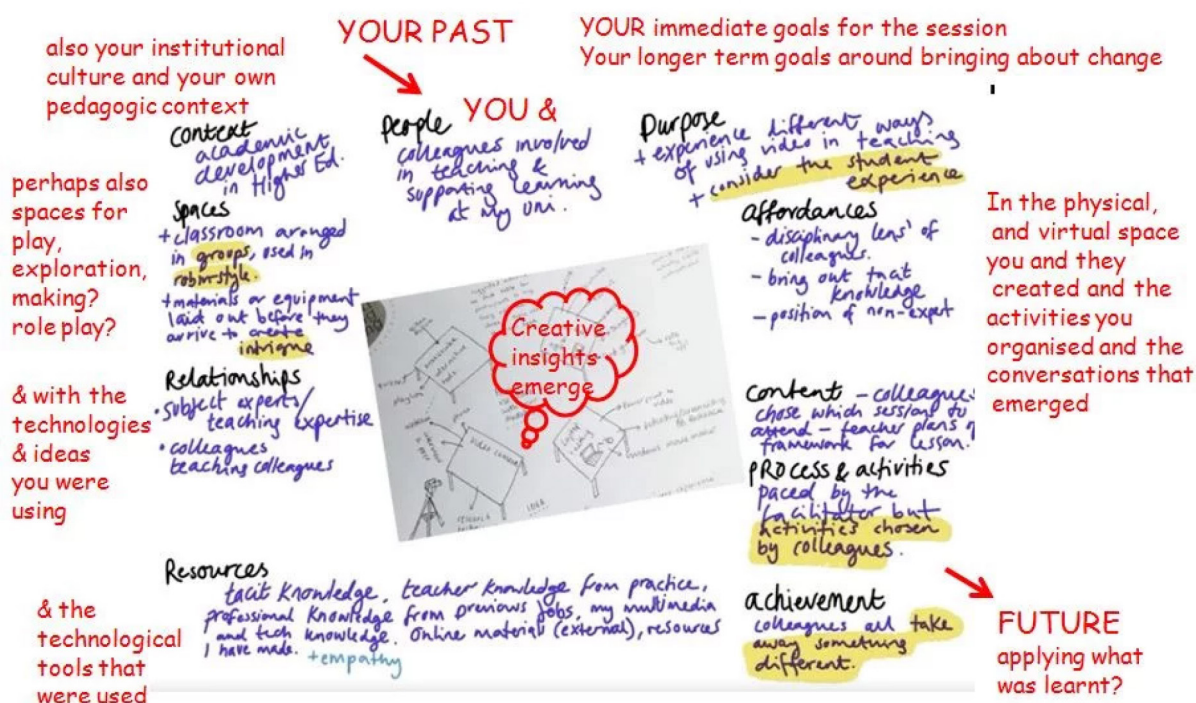 YOUR PAST
YOUR immediate goals for the session
Your longer term goals around bringing about change
also your institutional
culture and your own
pedagogic context
YOU &
Context
academic
development
in Higher Ed.
People
colleagues involved
in teaching &
supporting learning
at my uni.
Purpose
+ experience different ways
of using video in teaching
+ consider the student
experience
perhaps also
spaces for
play,
exploration,
making?
role play?
Spaces
+ classroom arranged
in groups, used in
robin-style.
+ materials or equipment
laid out before they
arrive to create
intrigue
affordances
- disciplinary lens' of
colleagues.
- bring out tacit
knowledge
- position of non-expert
In the physical,
and virtual space
you and they
created and the
activities you
organised and the
conversations that
emerged
Creative
insights
emerge
& with the
technologies
& ideas
you were
using
Relationships
• subject experts/
teaching expertise
• colleagues
teaching colleagues
video camera
IDEA
content - colleagues
chose which sessions to
attend - teacher plans
framework for lesson.
PROcess & activities
paced by the
facilitator but
activities chosen
by colleagues.
Resources
tacit knowledge, teacher knowledge from practice,
professional knowledge from previous jobs, my multimedia
and tech knowledge. Online material (external), resources
I have made.
+empathy
& the
technological
tools that
were used
achievement
colleagues all take
away something
different.
FUTURE
applying what
was learnt?